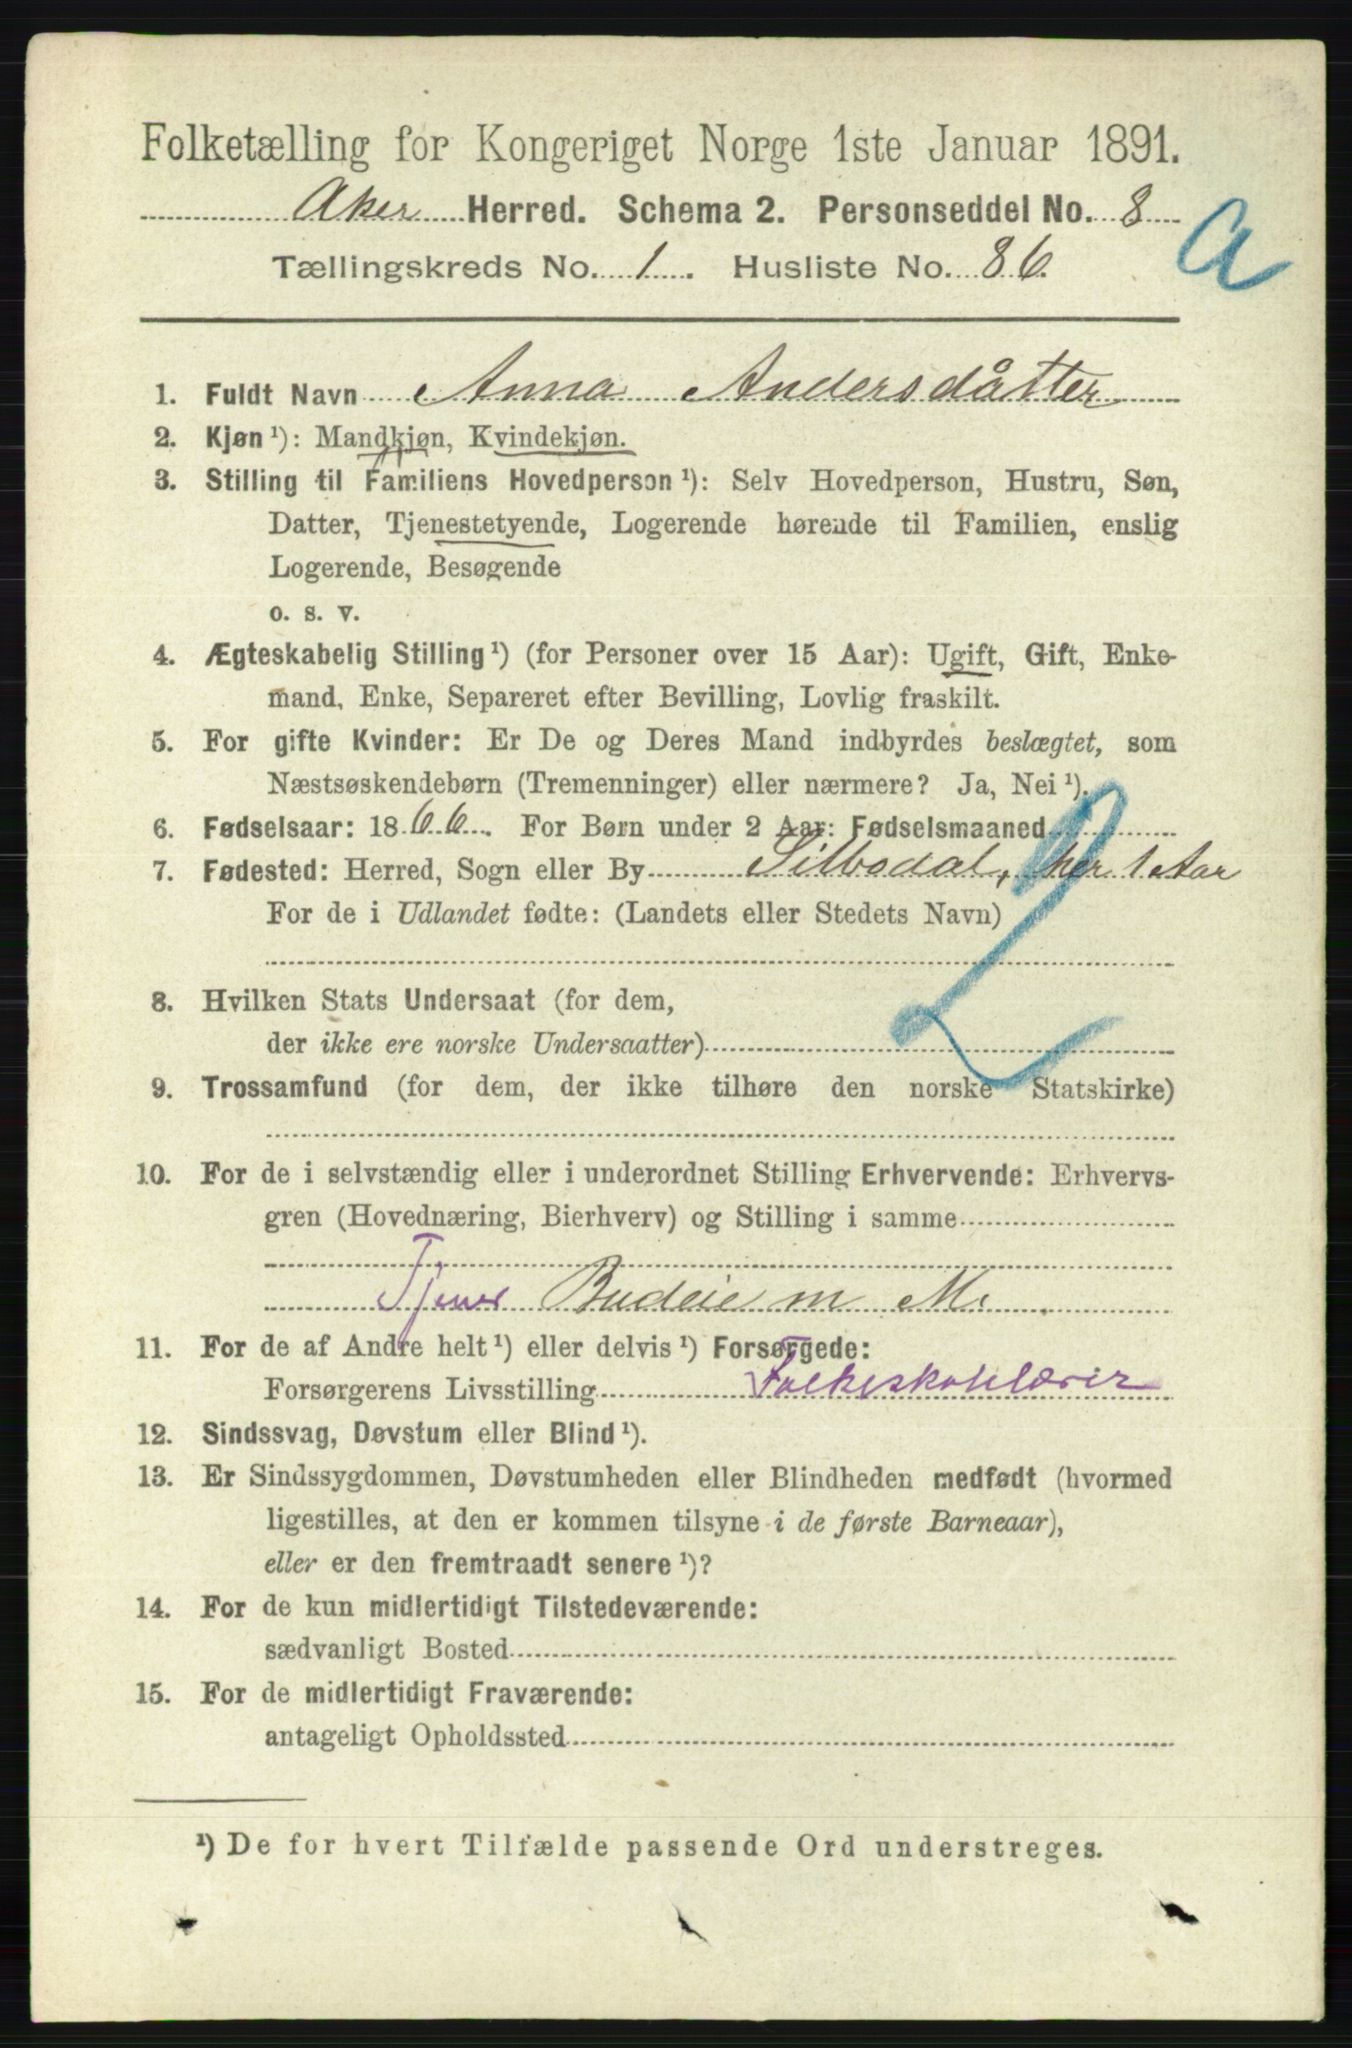 Folketælling for Kongeriget Norge 1ste Januar 1891.
Aker Herred. Schema 2. Personseddel No. 8
a
Tællingskreds No. 1. Husliste No. 86.
1. Fuldt Navn Anna Andersdåtter
2. Kjøn ¹): Mandkjøn, Kvindekjøn.
3. Stilling til Familiens Hovedperson ¹): Selv Hovedperson, Hustru, Søn,
Datter, Tjenestetyende, Logerende hørende til Familien, enslig
Logerende, Besøgende
o. s. v.
4. Ægteskabelig Stilling ¹) (for Personer over 15 Aar): Ugift, Gift, Enke-
mand, Enke, Separeret efter Bevilling, Lovlig fraskilt.
5. For gifte Kvinder: Er De og Deres Mand indbyrdes beslægtet, som
Næstsøskendebørn (Tremenninger) eller nærmere? Ja, Nei ¹).
6. Fødselsaar: 1866. For Børn under 2 Aar: Fødselsmaaned
7. Fødested: Herred, Sogn eller By Silbodal, her 1 Aar
For de i Udlandet fødte: (Landets eller Stedets Navn)
8. Hvilken Stats Undersaat (for dem,
der ikke ere norske Undersaatter)
9. Trossamfund (for dem, der ikke tilhøre den norske Statskirke)
10. For de i selvstændig eller i underordnet Stilling Erhvervende: Erhvervs-
gren (Hovednæring, Bierhverv) og Stilling i samme
Budeie m M.
11. For de af Andre helt ¹) eller delvis ¹) Forsørgede:
Forsørgerens Livsstilling
12. Sindssvag, Døvstum eller Blind ¹).
13. Er Sindssygdommen, Døvstumheden eller Blindheden medfødt (hvormed
ligestilles, at den er kommen tilsyne i de første Barneaar),
eller er den fremtraadt senere ¹)?
14. For de kun midlertidigt Tilstedeværende:
sædvanligt Bosted
15. For de midlertidigt Fraværende:
antageligt Opholdssted
¹) De for hvert Tilfælde passende Ord understreges.